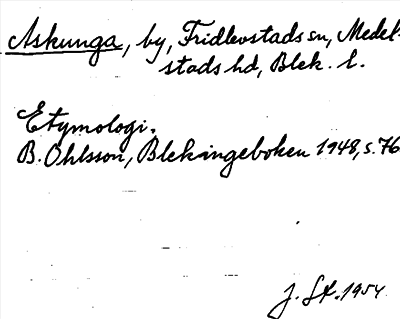 Askunga, by, Fridlevstads sn, Medel-
stads hd, Blek. l.
Etymologi.
B. Ohlsson, Blekingeboken 1948, s. 76
J. St. 1954